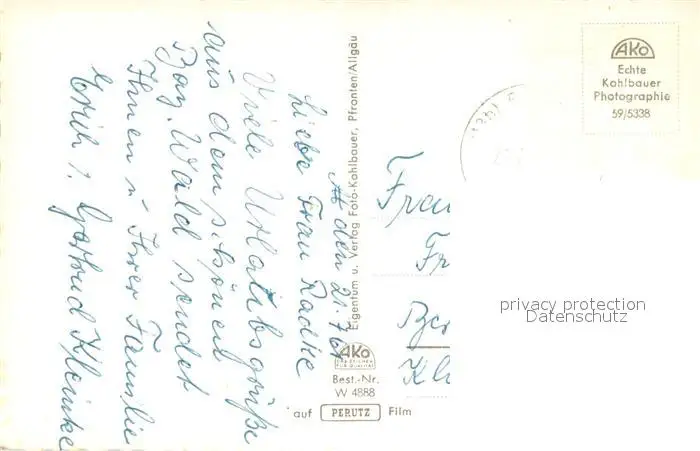 den 21.7.61
Liebe Frau Radtke
Viele Urlaubsgrüße
aus dem schönen
Bay. Wald sendet
Ihnen u. Ihrer Familie
Erich u. Gertrud Kleinke
Eigentum u. Verlag Foto-Kohlbauer, Pfronten/Allgäu
AKO
Best.-Nr.
W 4888
auf PERUTZ Film
AKO
Echte
Kohlbauer
Photographie
59/5338
Frau
Fr
Ber
Kl
privacy protection
Datenschutz